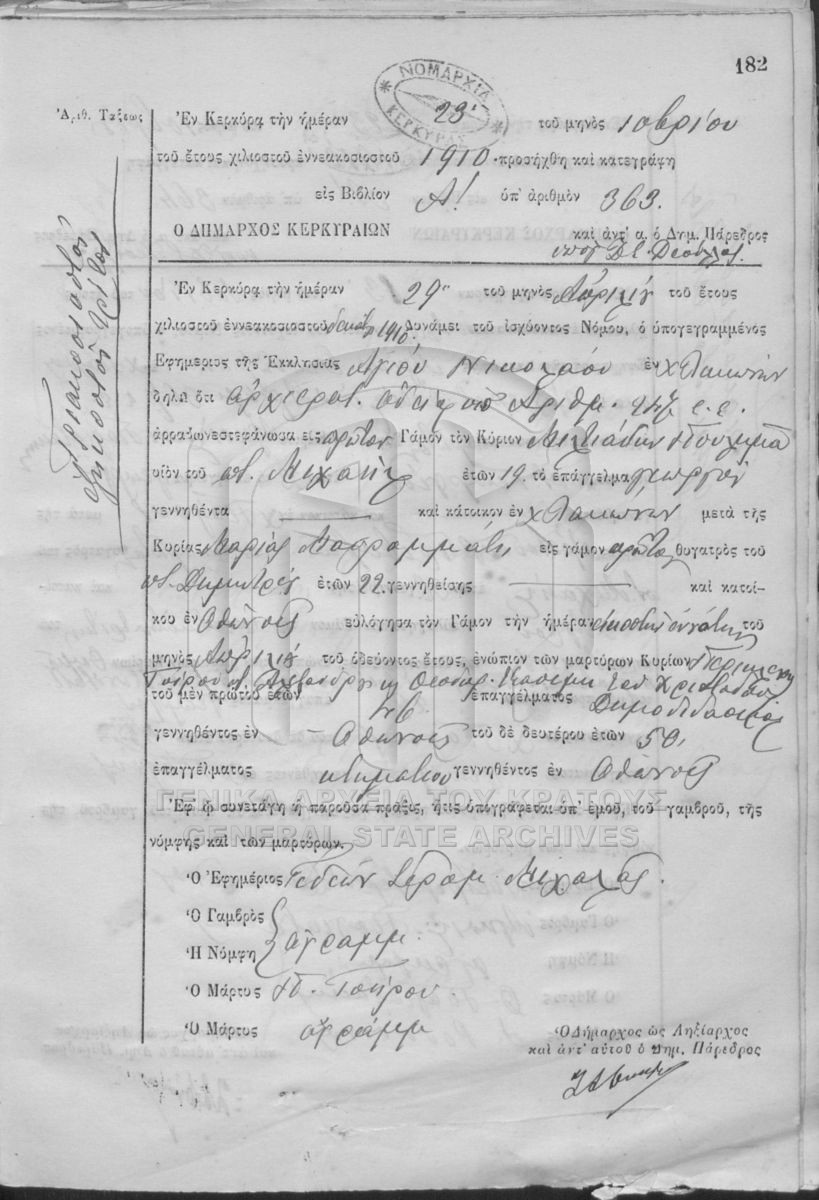 182
ΝΟΜΑΡΧΙΑ ΚΕΡΚΥΡΑΣ
Ἀριθ. Τάξεως
Τριακοσιοστὸς
ἑξηκοστὸς τρίτος
Ἐν Κερκύρᾳ τὴν ἡμέραν 23 τοῦ μηνὸς 10βρίου
τοῦ ἔτους χιλιοστοῦ ἐννεακοσιοστοῦ 1910 προσήχθη καὶ κατεγράφη
εἰς Βιβλίον Α! ὑπ' ἀριθμὸν 363.
Ο ΔΗΜΑΡΧΟΣ ΚΕΡΚΥΡΑΙΩΝ καὶ ἀντ' α. ὁ Δημ. Πάρεδρος
Ἐν Κερκύρᾳ τὴν ἡμέραν 29 τοῦ μηνὸς Ἀπριλίου τοῦ ἔτους
χιλιοστοῦ ἐννεακοσιοστοῦ δεκάτου 1910 Δυνάμει τοῦ ἰσχύοντος Νόμου, ὁ ὑπογεγραμμένος
Ἐφημέριος τῆς Ἐκκλησίας Ἁγίου Νικολάου ἐν χ Λακώνων
δηλῶ ὅτι ἀρχιερατ. ἀδείᾳ ὑπ' Ἀριθμ. ἐ.ἐ.
ἀρραβωνεστεφάνωσα εἰς πρῶτον Γάμον τὸν Κύριον Μιλτιάδην
υἱὸν τοῦ π. Μιχαὴλ ἐτῶν 19 τὸ ἐπάγγελμα γεωργὸν
γεννηθέντα καὶ κάτοικον ἐν χ Λακώνων μετὰ τῆς
Κυρίας Μαρίας εἰς γάμον πρῶτον θυγατρὸς τοῦ
π. Δημητρίου ἐτῶν 22 γεννηθείσης καὶ κατοί-
κου ἐν Ἀθῶνοις εὐλόγησα τὸν Γάμον τὴν ἡμέραν εἰκοστὴν ἐννάτην τοῦ
μηνὸς Ἀπριλίου τοῦ ὁδεύοντος ἔτους, ἐνώπιον τῶν μαρτύρων Κυρίων
τοῦ μὲν πρώτου ἐτῶν 46 ἐπαγγέλματος Δημοδιδασκάλου
γεννηθέντος ἐν Ἀθῶνοις τοῦ δὲ δευτέρου ἐτῶν 50
ἐπαγγέλματος κτηματίου γεννηθέντος ἐν Ἀθῶνοις
ΓΕΝΙΚΑ ΑΡΧΕΙΑ ΤΟΥ ΚΡΑΤΟΥΣ
Ἐφ' ᾧ συνετάγη ἡ παροῦσα πρᾶξις, ἥτις ὑπογράφεται ὑπ' ἐμοῦ, τοῦ γαμβροῦ, τῆς
GENERAL STATE ARCHIVES
νύμφης καὶ τῶν μαρτύρων.
Ὁ Ἐφημέριος Γεδεὼν Ἱερομ. Μιχαλᾶς.
Ὁ Γαμβρὸς
Ἡ Νύμφη ἀγράμμ.
Ὁ Μάρτυς Π. Τσίρου.
Ὁ Μάρτυς ἀγράμμ
Ὁ Δήμαρχος ὡς Ληξίαρχος
καὶ ἀντ' αὐτοῦ ὁ Δημ. Πάρεδρος